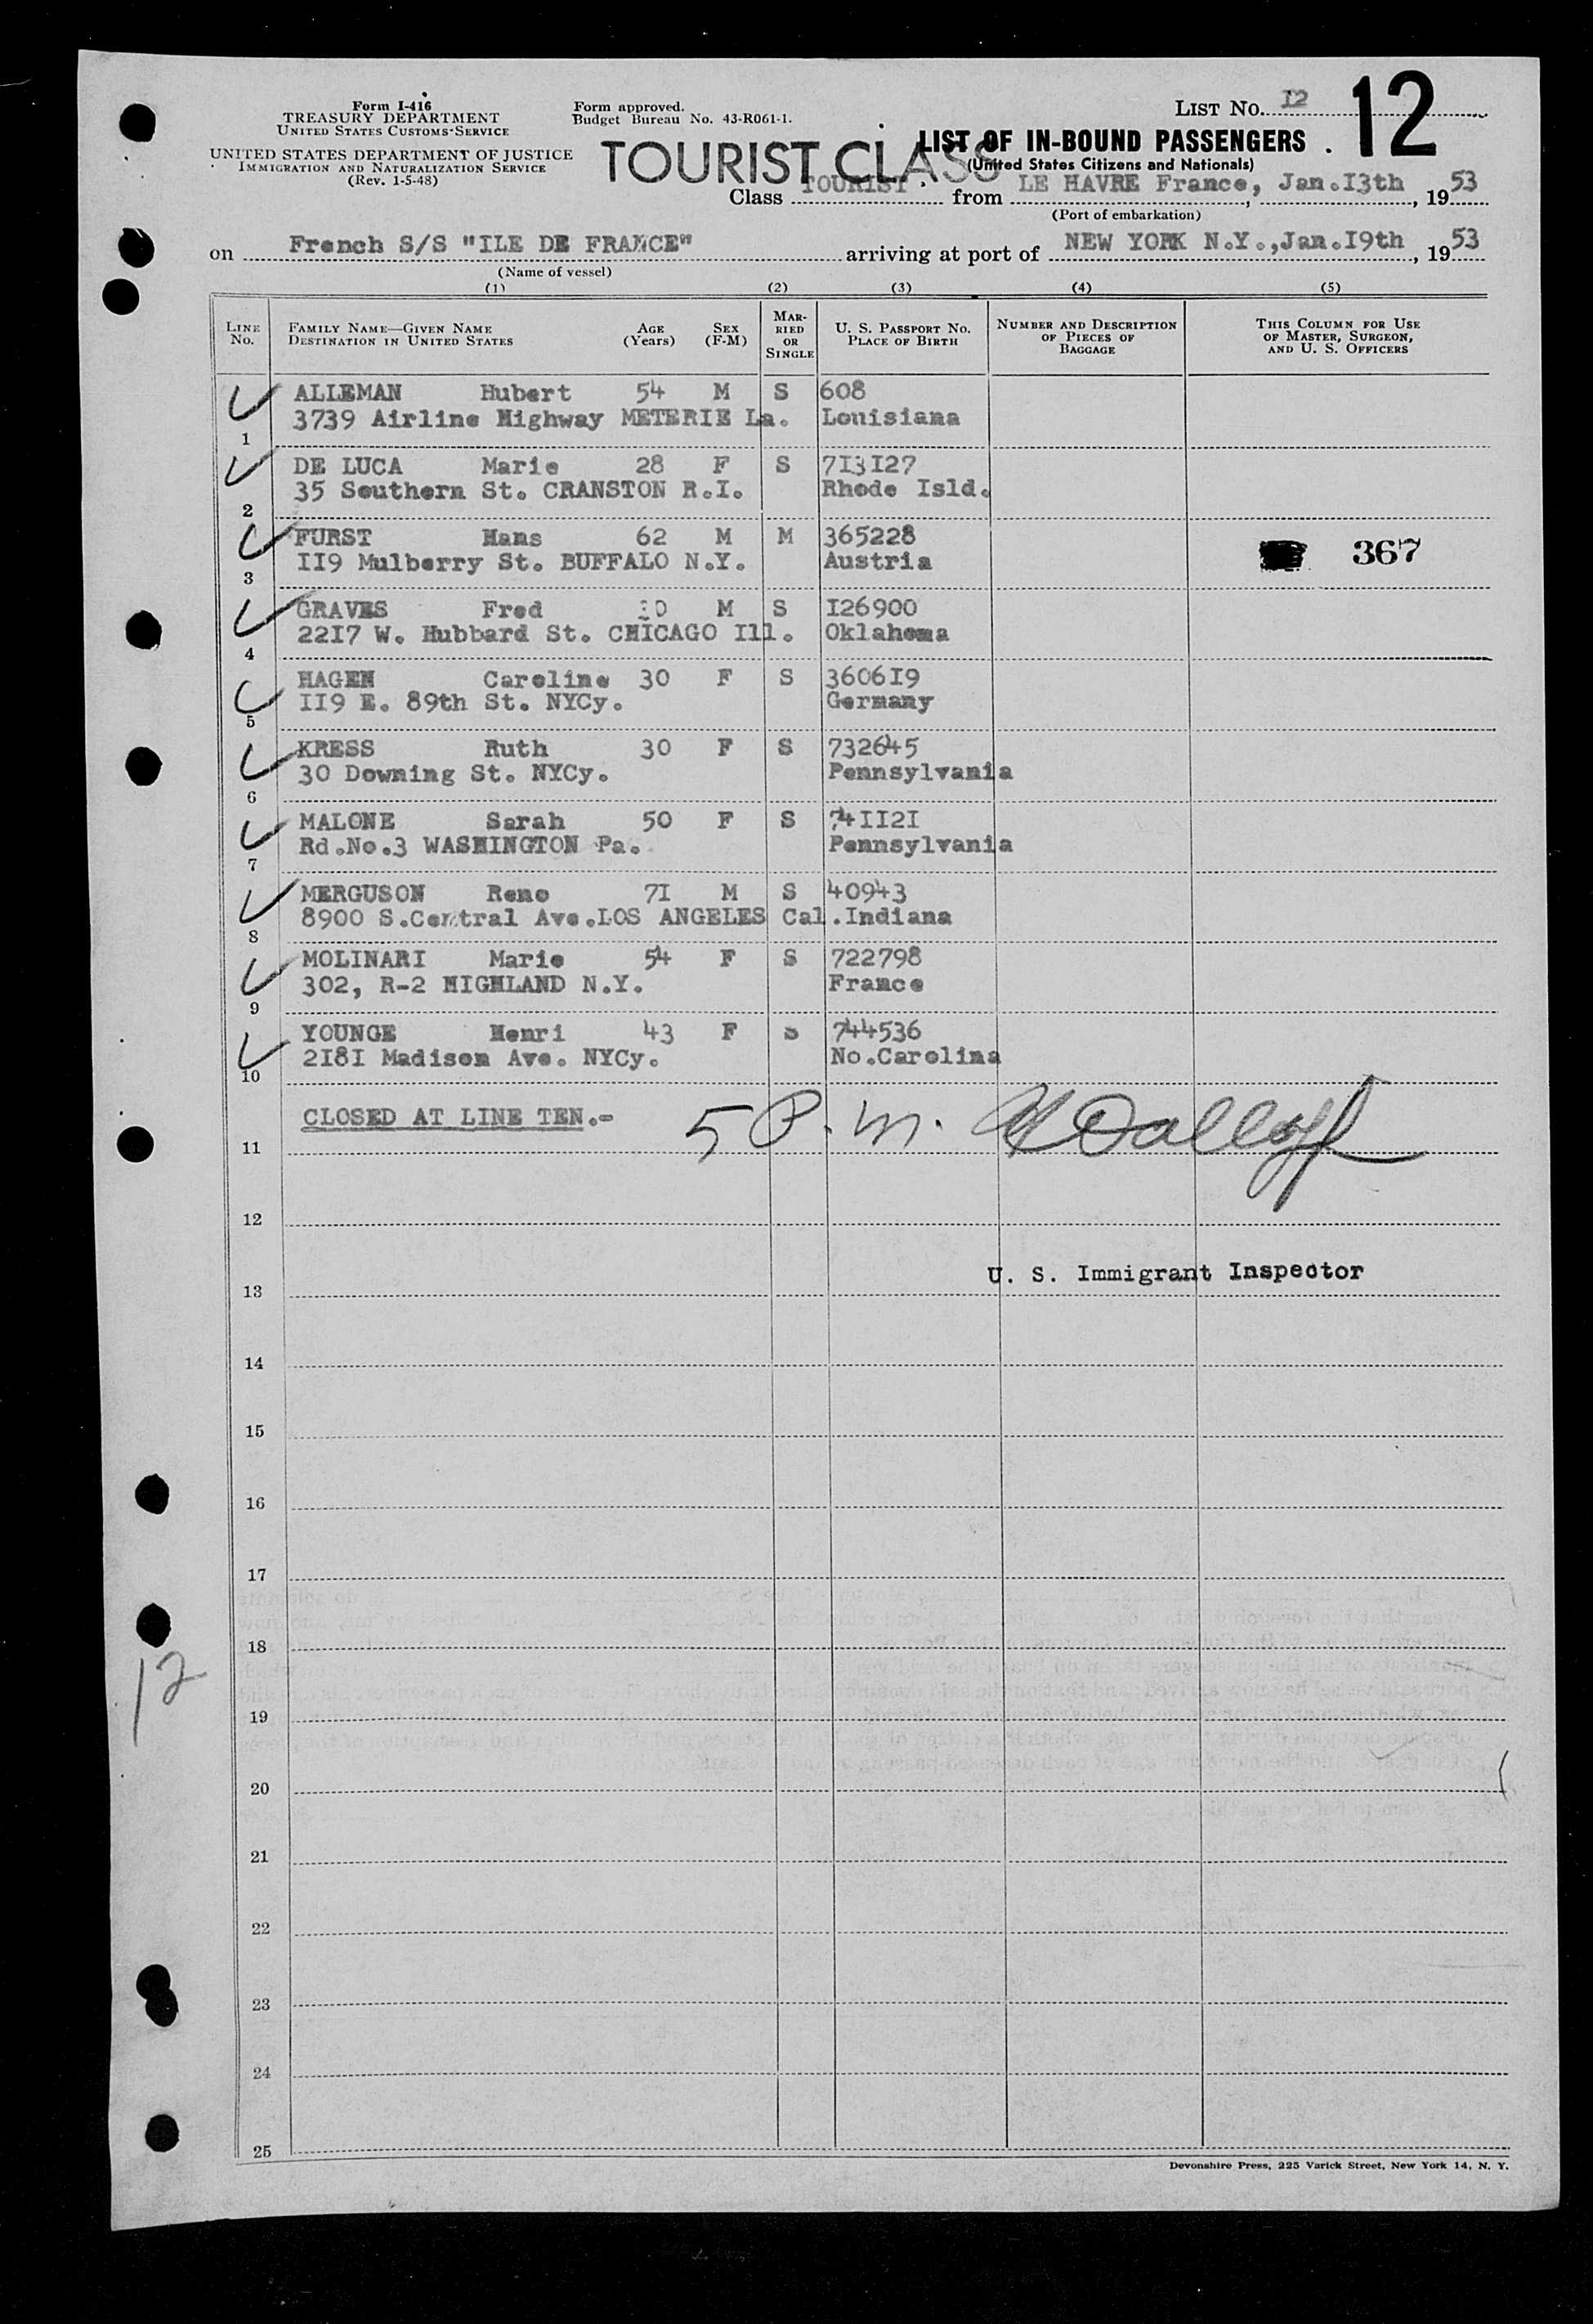 Form I-416
TREASURY DEPARTMENT
UNITED STATES CUSTOMS SERVICE
UNITED STATES DEPARTMENT OF JUSTICE
IMMIGRATION AND NATURALIZATION SERVICE
(Rev. 1-5-48)
Form approved.
Budget Bureau No. 43-R061-1.
LIST No. I2
12
TOURIST CLASS
LIST OF IN-BOUND PASSENGERS
(United States Citizens and Nationals)
Class TOURIST from LE HAVRE France, Jan.I3th, 1953
(Port of embarkation)
on French S/S "ILE DE FRANCE" arriving at port of NEW YORK N.Y.,Jan.I9th, 1953
(Name of vessel)
(1) (2) (3) (4) (5)
LINE No. FAMILY NAME—GIVEN NAME DESTINATION IN UNITED STATES AGE (Years) SEX (F-M) MARRIED OR SINGLE U. S. PASSPORT No. PLACE OF BIRTH NUMBER AND DESCRIPTION OF PIECES OF BAGGAGE THIS COLUMN FOR USE OF MASTER, SURGEON, AND U. S. OFFICERS
ALLEMAN Hubert 54 M S 608
3739 Airline Highway METERIE La. Louisiana
1
DE LUCA Marie 28 F S 7I3I27
35 Southern St. CRANSTON R.I. Rhode Isld.
2
FURST Hans 62 M M 365228
II9 Mulberry St. BUFFALO N.Y. Austria 367
3
GRAVES Fred M S I26900
22I7 W. Hubbard St. CHICAGO Ill. Oklahoma
4
HAGEN Caroline 30 F S 3606I9
II9 E. 89th St. NYCy. Germany
5
KRESS Ruth 30 F S 732645
30 Downing St. NYCy. Pennsylvania
6
MALONE Sarah 50 F S 74II2I
Rd.No.3 WASHINGTON Pa. Pennsylvania
7
MERGUSON Reno 7I M S 40943
8900 S.Central Ave.LOS ANGELES Cal.Indiana
8
MOLINARI Marie 54 F S 722798
302, R-2 HIGHLAND N.Y. France
9
YOUNGE Henri 43 F S 744536
2I8I Madison Ave. NYCy. No.Carolina
10
CLOSED AT LINE TEN.- 5 P.M.
11
12
U. S. Immigrant Inspector
13
14
15
16
17
18
12
19
20
21
22
23
24
25
Devonshire Press, 225 Varick Street, New York 14, N. Y.